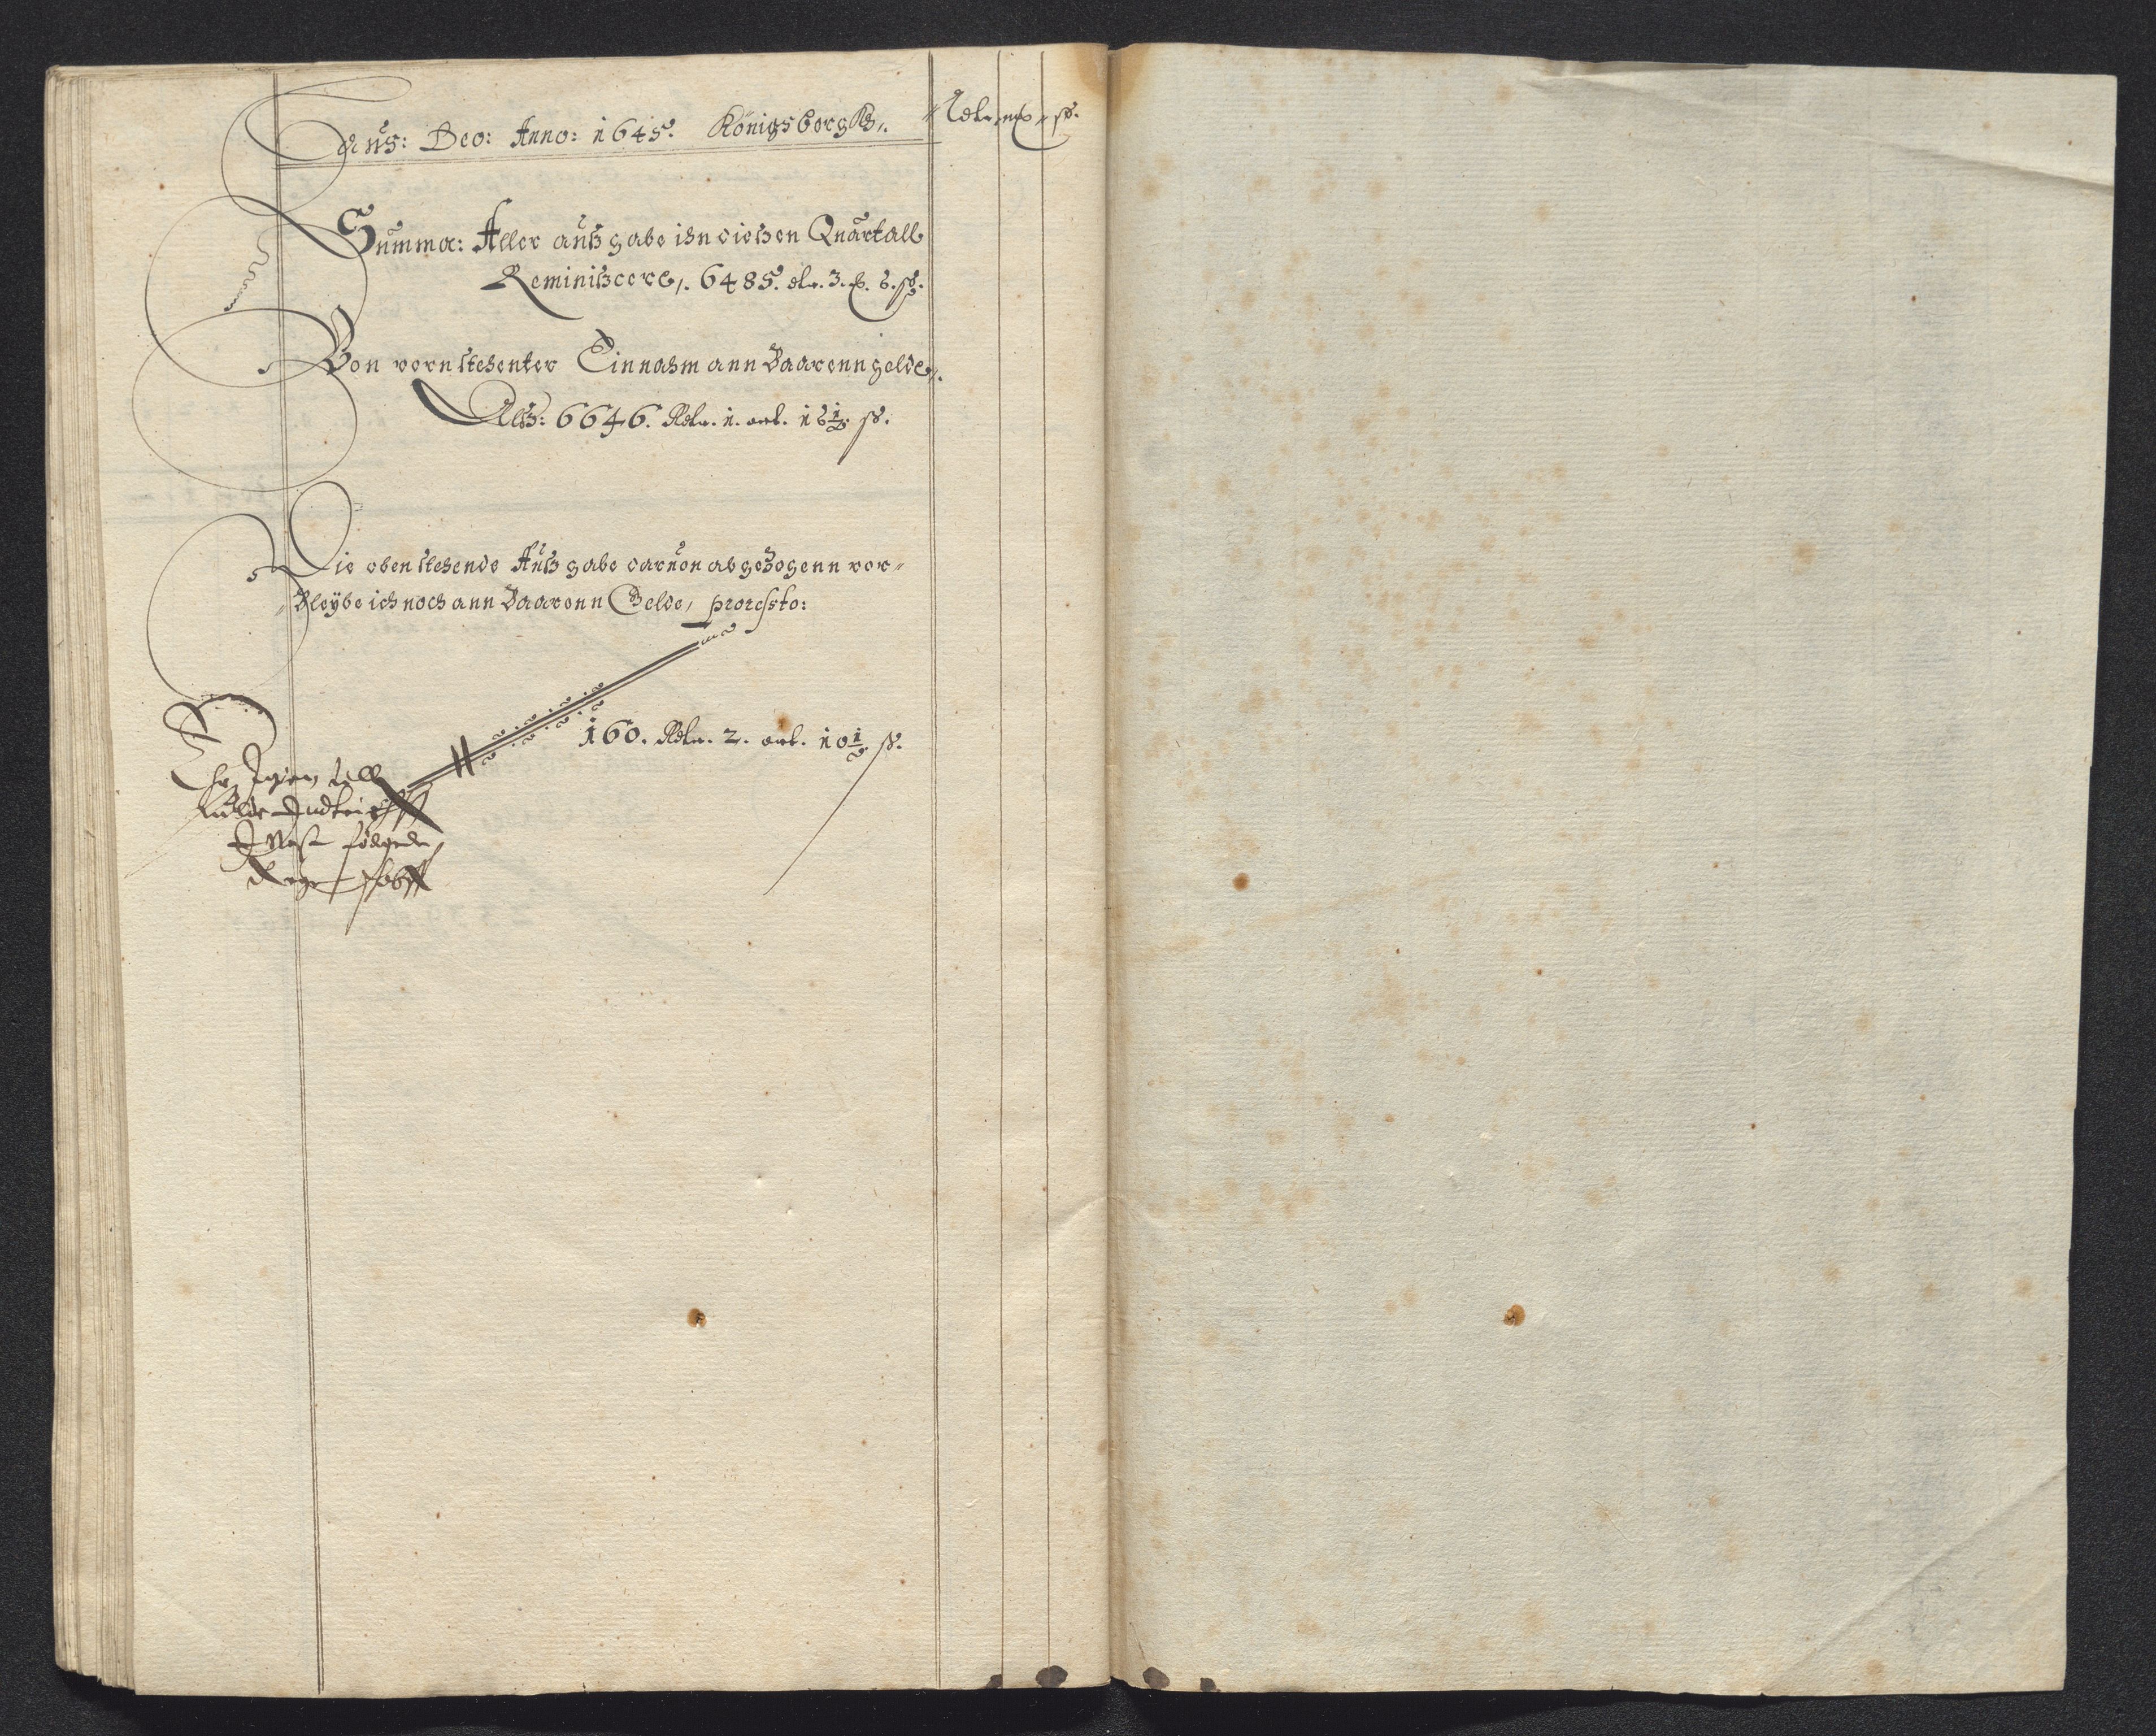 Laus: Deo: Anno: 1645. Königsbergk,. Rdlr. ort. ß.
Summa: Aller außgabe ihn dießen Quartall
Reminißcere,. 6485. dlr. 3. ort. 6. ß.
Von vornstehenter Einnahm ann Baarenn gelde,.
Alß: 6646. Rdlr. 1. ort. 16½ ß.
Die obenstehende Außgabe daruon abgezogenn vor-
Bleÿbe ich noch ann Baarenn Gelde, proressto:
160. Rdlr. 2. ort. 10½ ß.
igien till
følgende